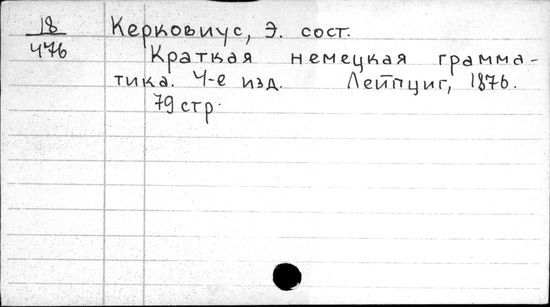 18
476
Керковиус, Э. сост.
Краткая немецкая грамма-
тика. 4-е изд. Лейпциг, 1876.
79 стр.